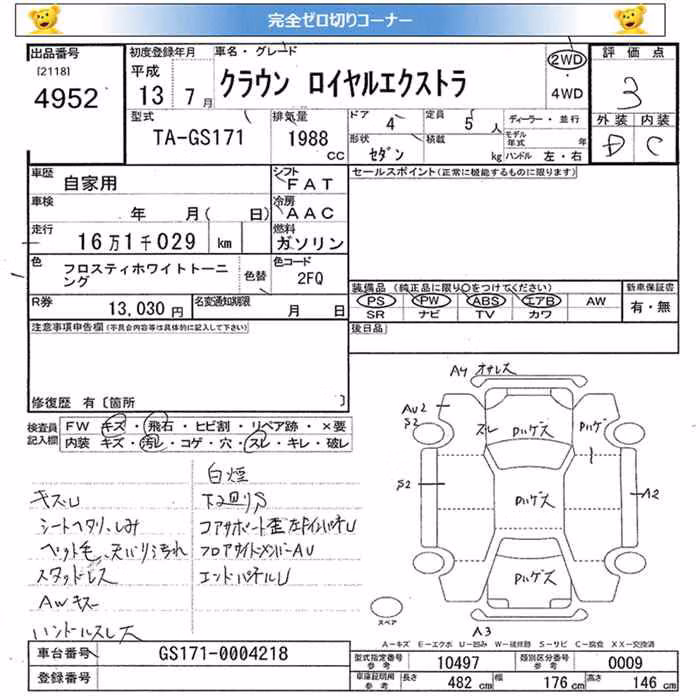 完全ゼロ切りコーナー
出品番号
[2118]
4952
初度登録年月
平成
13 7月
車名・グレード
クラウン ロイヤルエクストラ
2WD
・
4WD
評価点
3
外装 内装
D C
型式
TA-GS171
排気量
1988
CC
ドア
4
定員
5人
ディーラー・並行
形状
セダン
積載
kg
モデル年式 年
ハンドル 左・右
車歴
自家用
シフト
FAT
セールスポイント(正常に機能するものに限ります)
車検
年 月( 日)
冷房
AAC
走行
16万1千029 km
燃料
ガソリン
色
フロスティホワイトトーニング
色替
色コード
2FQ
装備品(純正品に限り○をつけてください)
新車保証書
PS PW ABS エアB AW
有・無
SR ナビ TV カワ
R券
13,030円
名変通知期限
月 日
後日品
注意事項申告欄(不具合内容等は具体的に記入して下さい)
修復歴 有〔箇所 〕
検査員記入欄
FW キズ・飛石・ヒビ割・リペア跡・×要
内装 キズ・汚れ・コゲ・穴・スレ・キレ・破レ
白煙
キズU
下回りS
シートヘタリ、しみ
コアサポート歪 左インパネU
ペット毛、天バリ汚れ
フロアサイドメンバーAU
スタッドレス
エンドパネルU
AWキズ
ハンドルスレ大
A4
AU2
S2
スレ
ハゲズ
ハゲズ
S2
ハゲズ
A2
ハゲズ
スペア
A3
A―キズ E―エクボ U―凹み W―補修跡 S―サビ C―腐食 XX―交換済
車台番号
GS171-0004218
登録番号
型式指定番号
参考
10497
類別区分番号
参考
0009
車庫証明用
参考
長さ 482 cm
幅 176 cm
高さ 146 cm